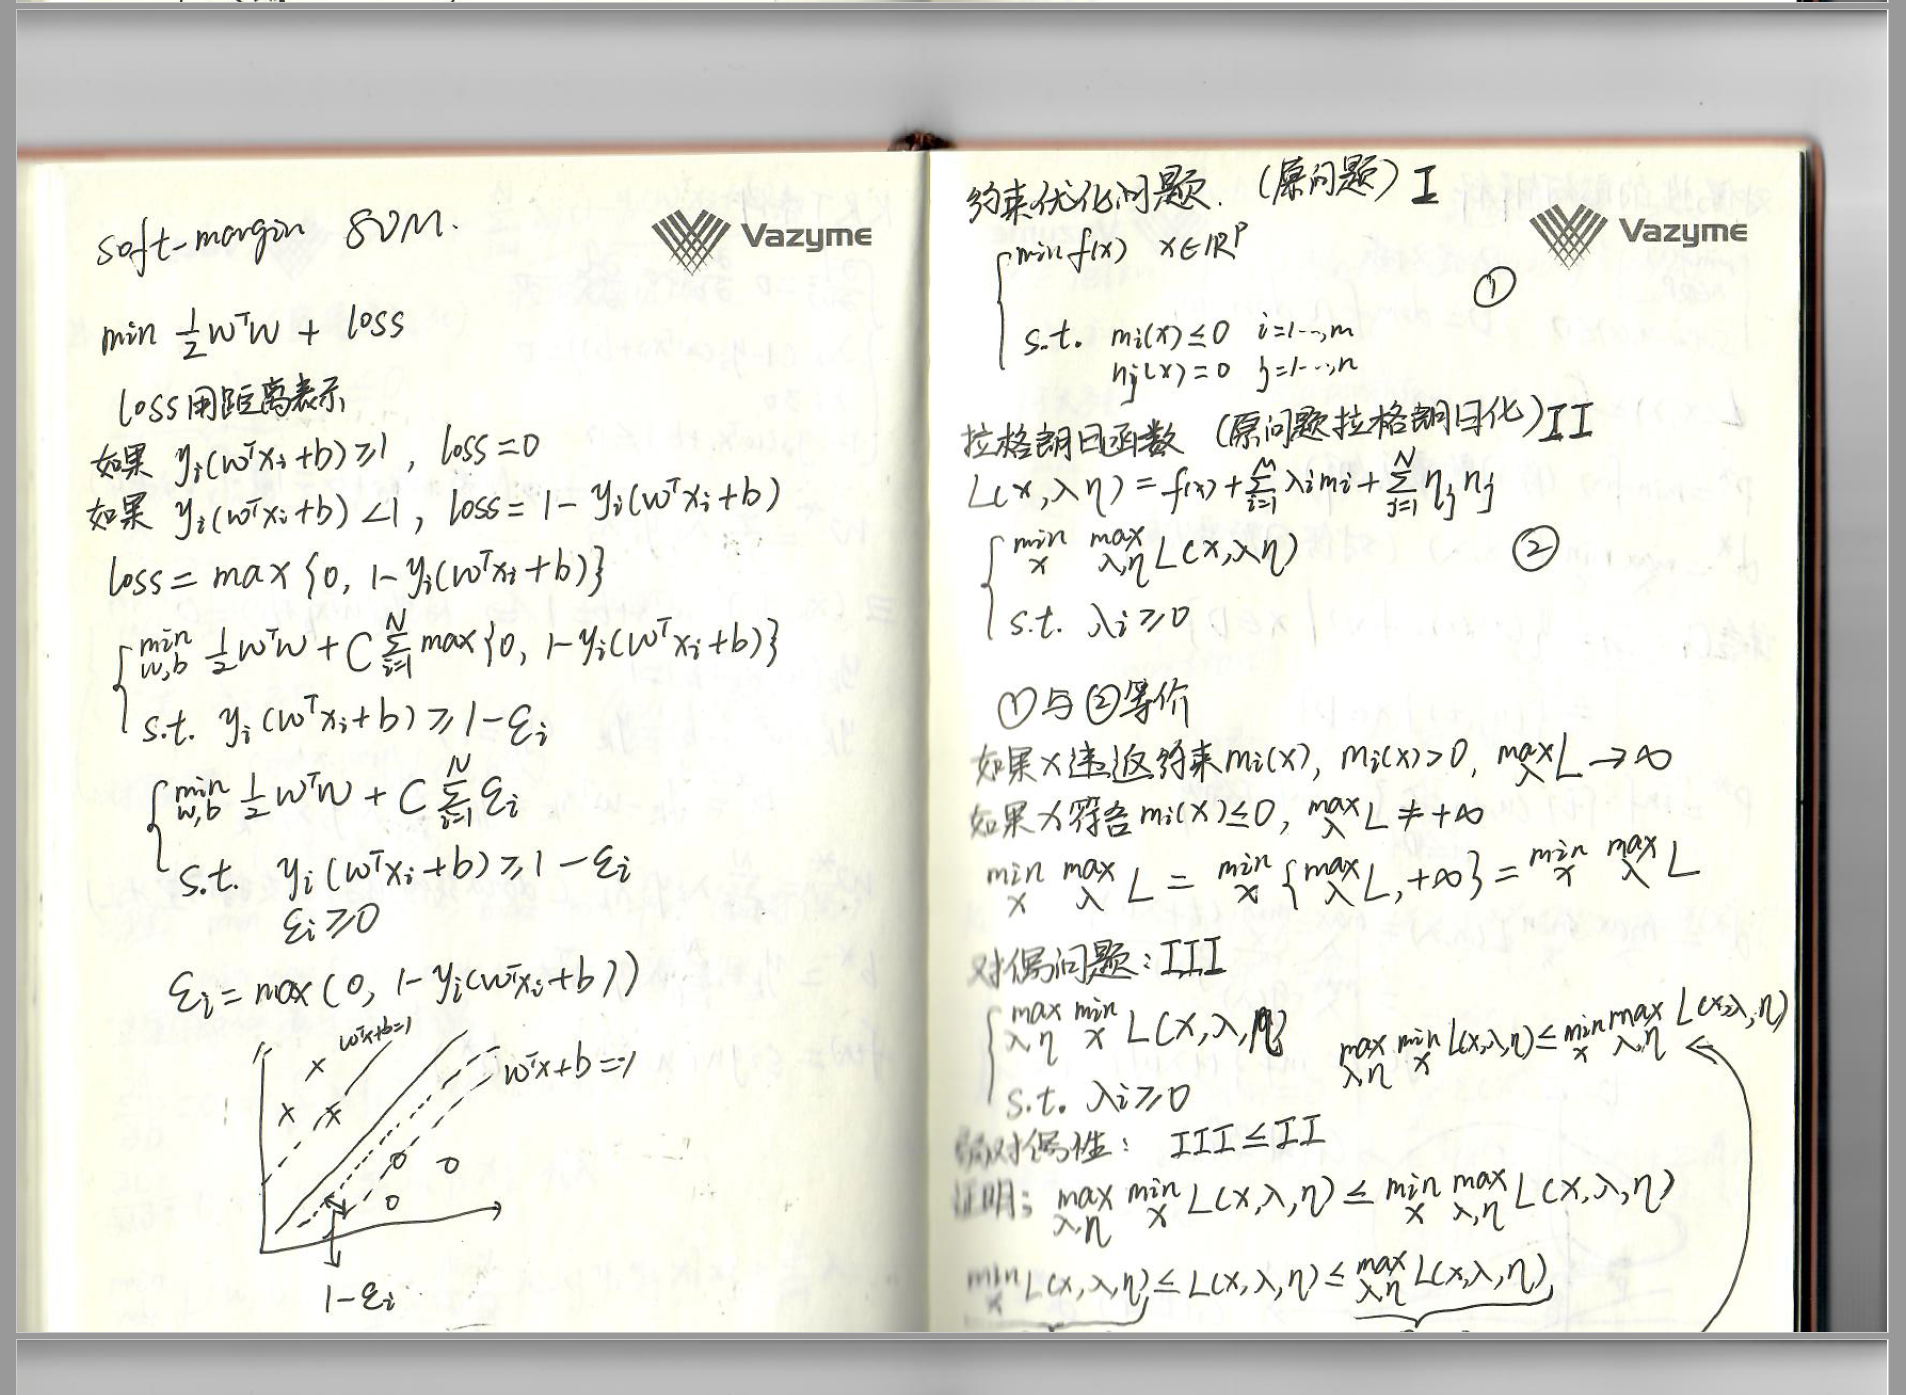 soft-margin SVM.
Vazyme
min 1/2 wᵀw + loss
loss用距离表示
如果 yᵢ(wᵀxᵢ+b)≥1, loss=0
如果 yᵢ(wᵀxᵢ+b)<1, loss=1-yᵢ(wᵀxᵢ+b)
loss=max{0, 1-yᵢ(wᵀxᵢ+b)}
{ min w,b 1/2 wᵀw + C Σ i=1 N max{0, 1-yᵢ(wᵀxᵢ+b)}
s.t. yᵢ(wᵀxᵢ+b)≥1-εᵢ
{ min w,b 1/2 wᵀw + C Σ i=1 N εᵢ
s.t. yᵢ(wᵀxᵢ+b)≥1-εᵢ
εᵢ≥0
εᵢ=max(0, 1-yᵢ(wᵀxᵢ+b))
wᵀx+b=1
wᵀx+b=-1
1-εᵢ
约束优化问题. (原问题) I
Vazyme
{ min f(x) x∈ℝᵖ
①
s.t. mᵢ(x)≤0 i=1...,m
nⱼ(x)=0 j=1...,n
拉格朗日函数 (原问题拉格朗日化) II
L(x,λη)=f(x)+Σ i=1 M λᵢmᵢ+Σ j=1 N ηⱼnⱼ
{ min x max λ,η L(x,λη) ②
s.t. λᵢ≥0
①与②等价
如果x违返约束mᵢ(x), mᵢ(x)>0, max λ L→∞
如果x符合mᵢ(x)≤0, max λ L≠+∞
min x max λ L = min x {max λ L, +∞} = min x max λ L
对偶问题: III
{ max λη min x L(x,λ,η)
max λ,η min x L(x,λ,η)≤min x max λ,η L(x,λ,η)
s.t. λᵢ≥0
弱对偶性: III≤II
证明; max λ,η min x L(x,λ,η)≤min x max λ,η L(x,λ,η)
min x L(x,λ,η)≤L(x,λ,η)≤max λ,η L(x,λ,η)